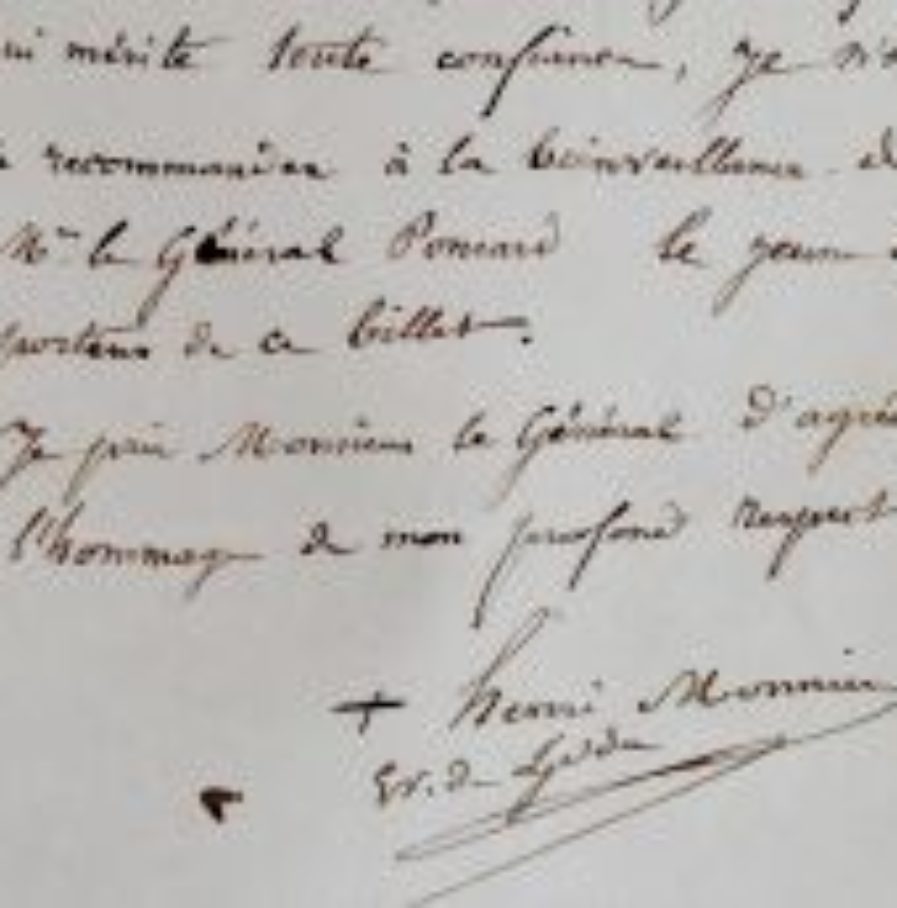 qui mérite toute confiance, je
recommander à la bienveillance de
Mr le Général le jeune
porteur de ce billet.
Je prie Monsieur le Général d'agré
l'hommage de mon profond respect
+ henri Monnier
Ev. de Lydda